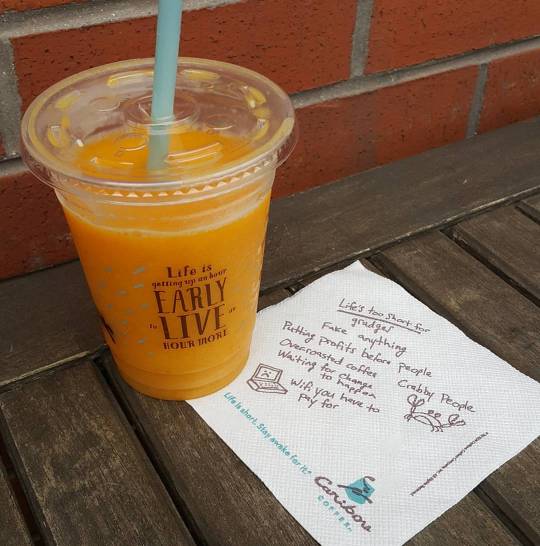 Life is
getting up an hour
EARLY
to LIVE an
HOUR MORE
Life's too short for
grudges
Fake anything
Putting profits before people
Overroasted coffee
Waiting for change
to happen
Crabby People
Wifi you have to
pay for
Life is short. Stay awake for it.
Caribou
COFFEE